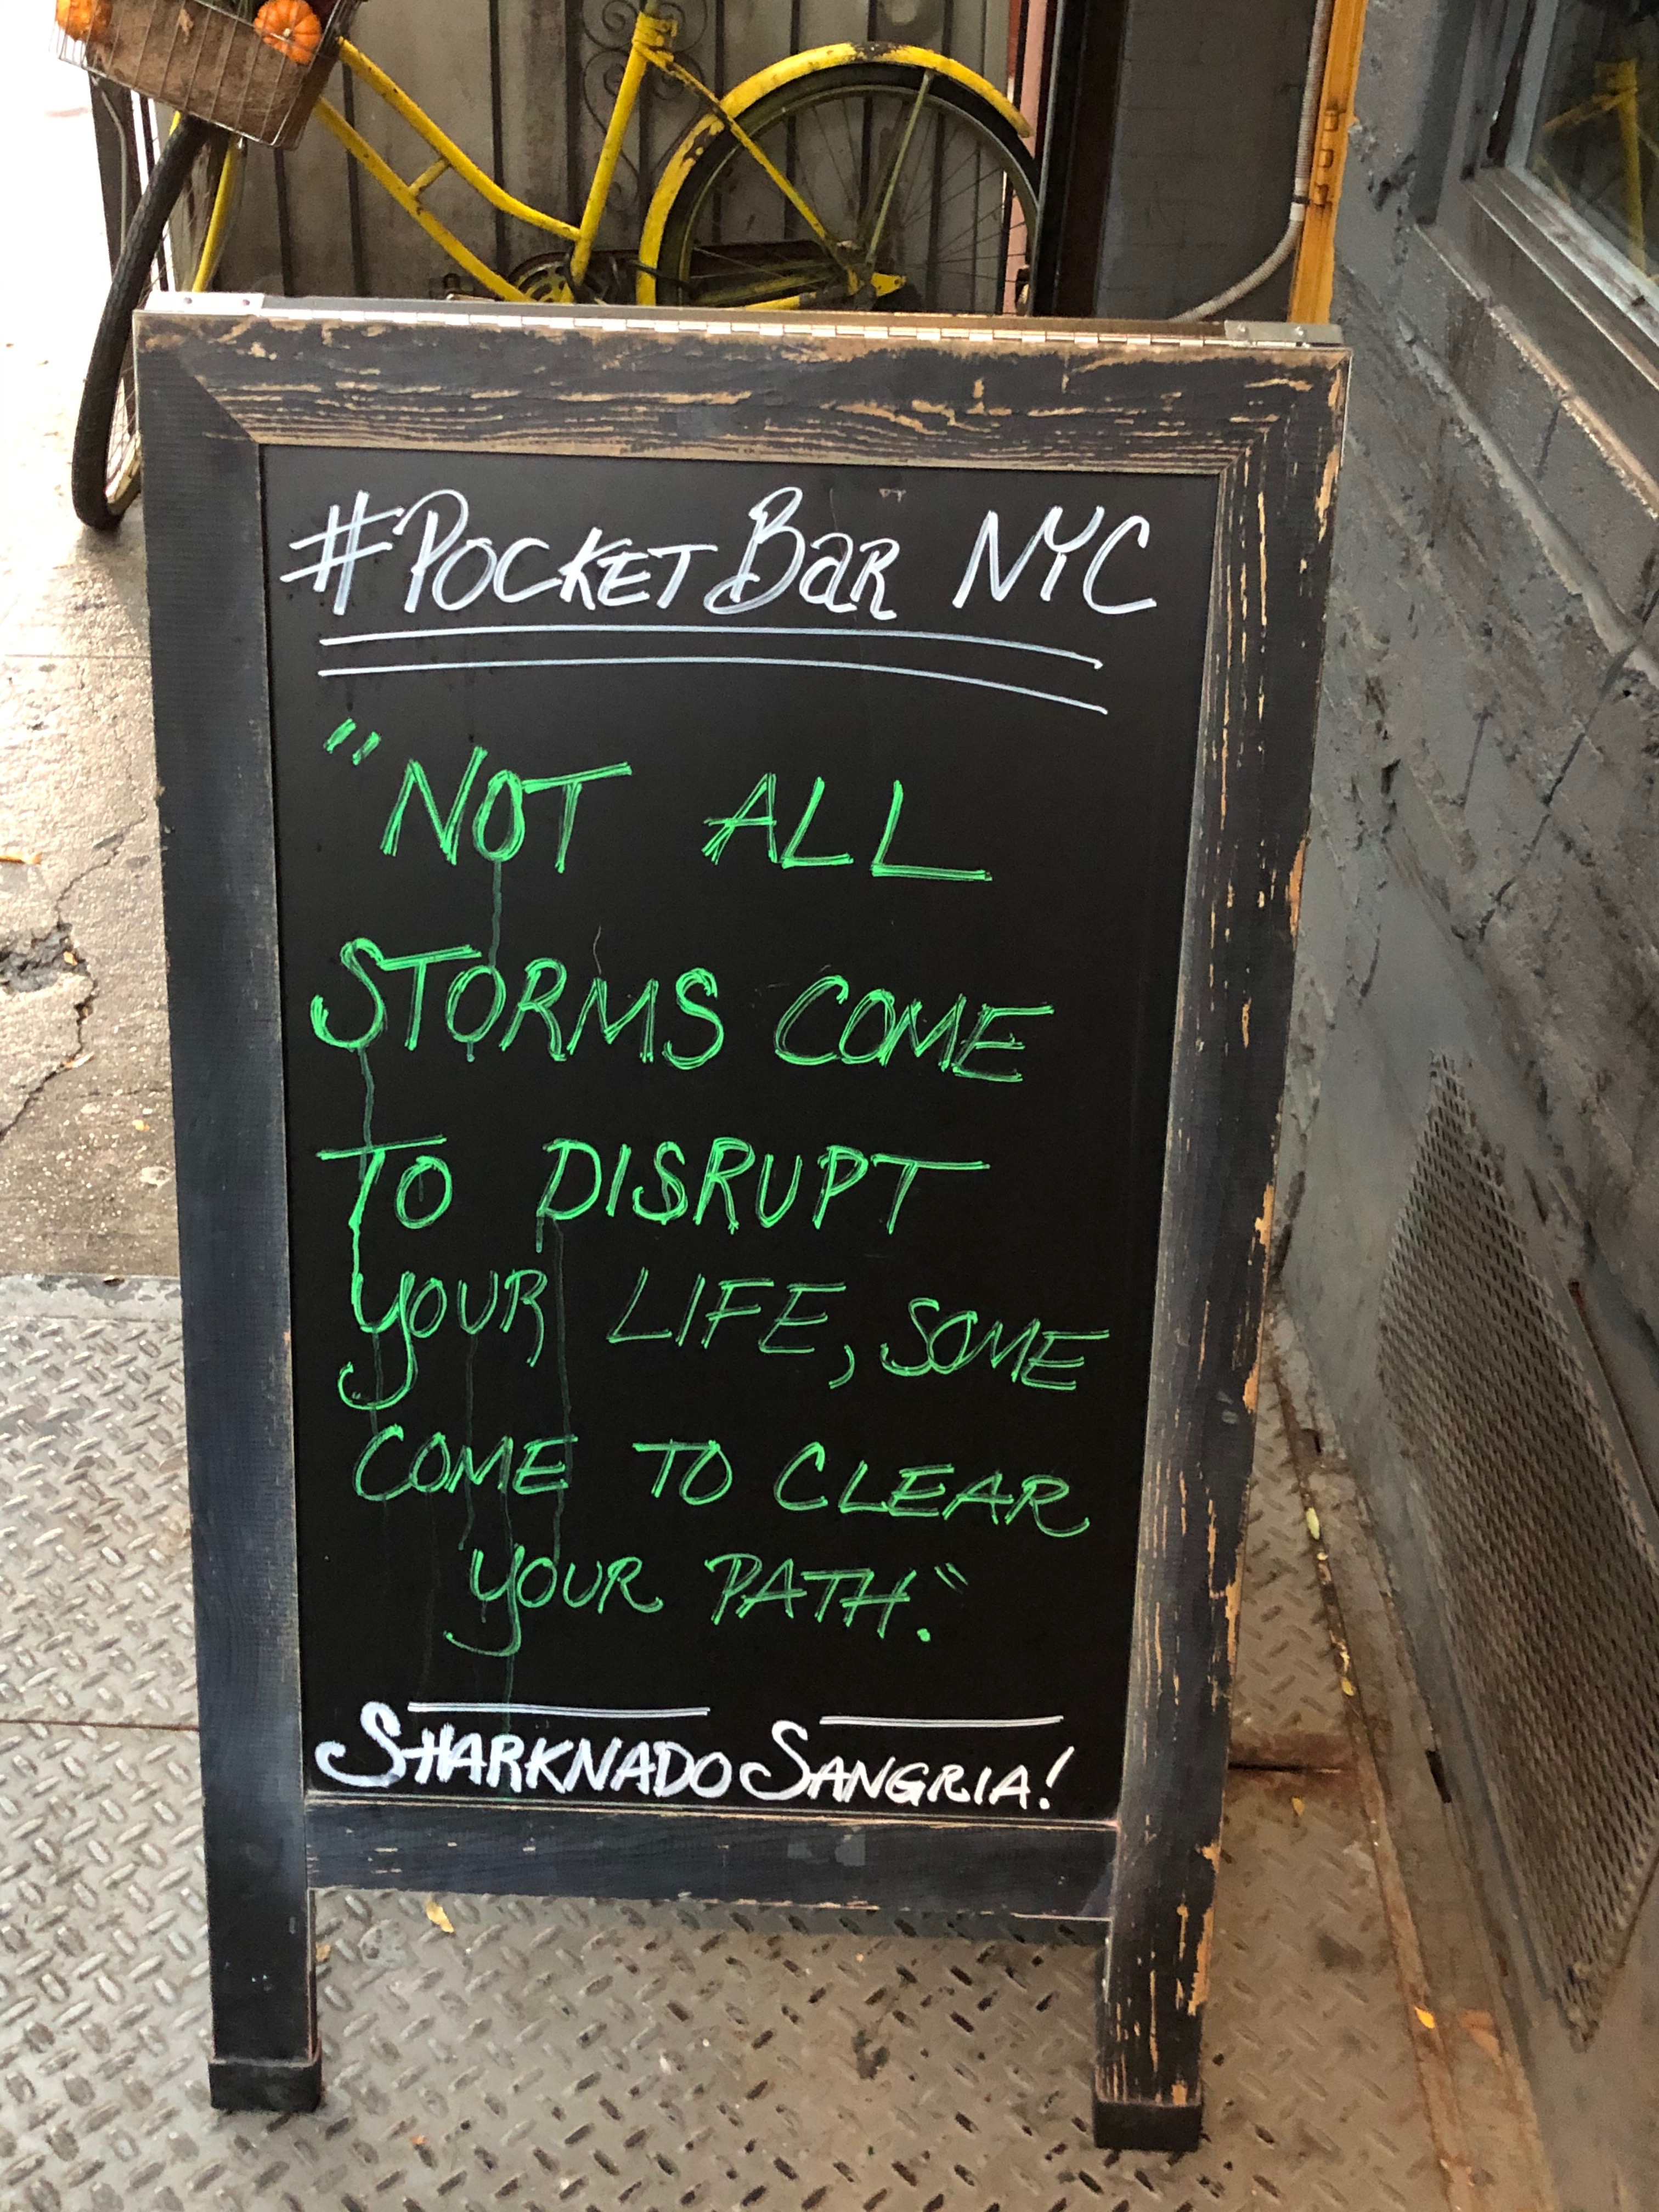 #PocketBar NYC
"NOT ALL
STORMS COME
TO DISRUPT
YOUR LIFE, SOME
COME TO CLEAR
YOUR PATH."
SHARKNADO SANGRIA!